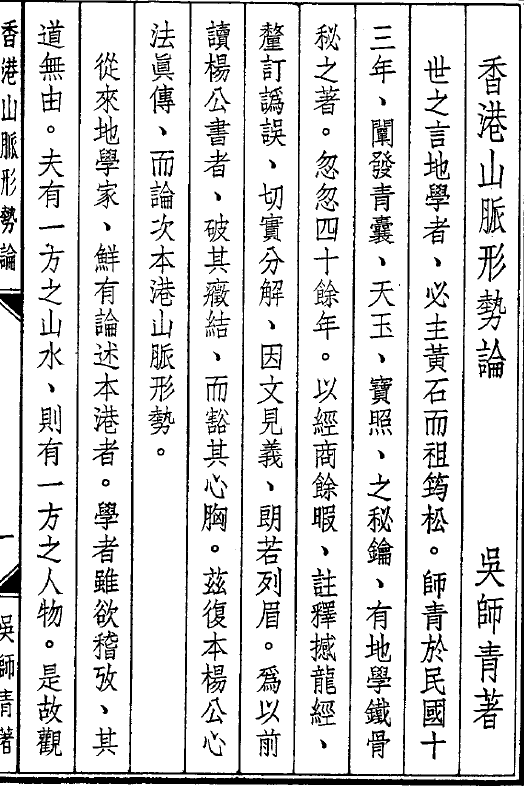 香港山脈形勢論 吳師青著
世之言地學者、必主黃石而祖筠松。師青於民國十
三年、闡發青囊、天玉、寶照、之秘鑰、有地學鐵骨
秘之著。忽忽四十餘年。以經商餘暇、註釋撼龍經、
釐訂譌誤、切實分解、因文見義、朗若列眉。爲以前
讀楊公書者、破其癥結、而豁其心胸。茲復本楊公心
法眞傳、而論次本港山脈形勢。
從來地學家、鮮有論述本港者。學者雖欲稽攷、其
道無由。夫有一方之山水、則有一方之人物。是故觀
香港山脈形勢論 一 吳師青著